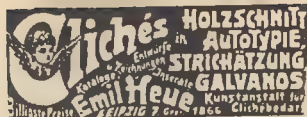 Clichés
in HOLZSCHNIT
AUTOTYPIE
STRICHÄTZUNG
GALVANOS
Entwürfe
Zeichnungen
Kataloge
Inserate
Emil Heue
Billigste Preise
LEIPZIG
1866
Kunstanstalt für
Clichébedarf